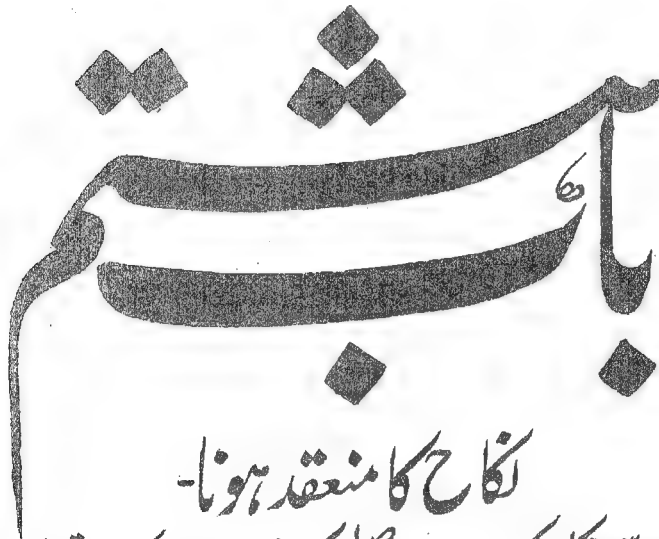 باب ہشتم
نکاح کا منعقد ہونا-